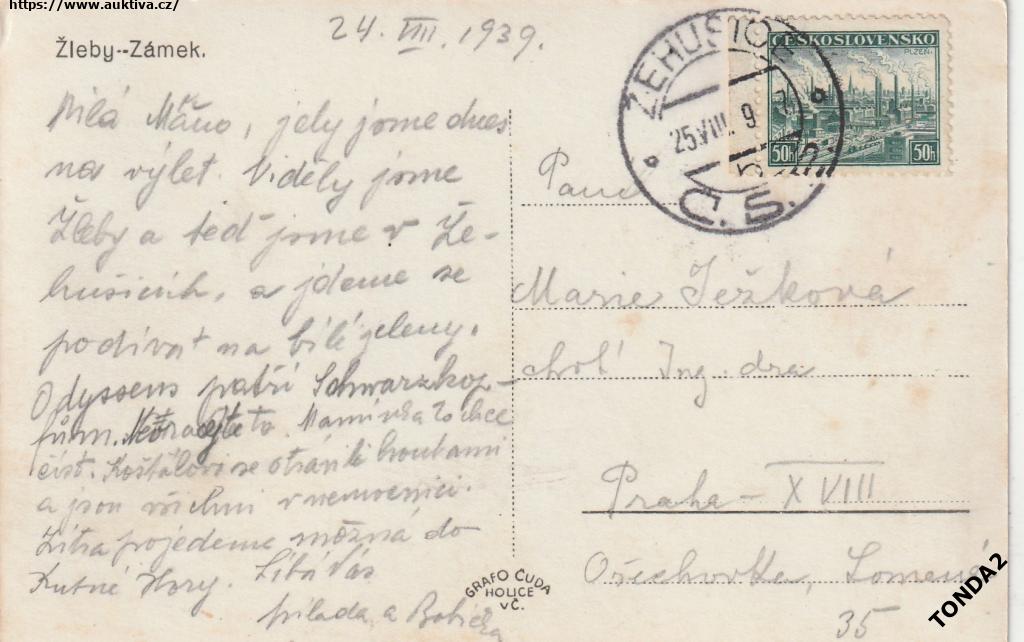 https://www.auktiva.cz/
24. VIII. 1939.
Žleby--Zámek.
Milá Máňo, jely jsme dnes
na výlet. Viděly jsme
Žleby a teď jsme v Že-
hušicích, a jdeme se
podívat na bílé jeleny.
Odysseus patří Schwarzkop-
fům. Neztraťte to. Maminka to chce
číst. Košťálovi se otrávili houbami
a jsou všichni v nemocnici.
Zítra pojedeme možná do
Kutné Hory. Líbá Vás
Milada a Bobicka
ŽEHUŠICE
25.VIII. 9
Č. S.
ČESKOSLOVENSKO
PLZEŇ.
50h 50h
Paní
Marie Ježková
choť Ing. dra
Praha - XVIII
Ořechovka, Lomená
35
GRAFO ČUDA
HOLICE
V Č.
TONDA2